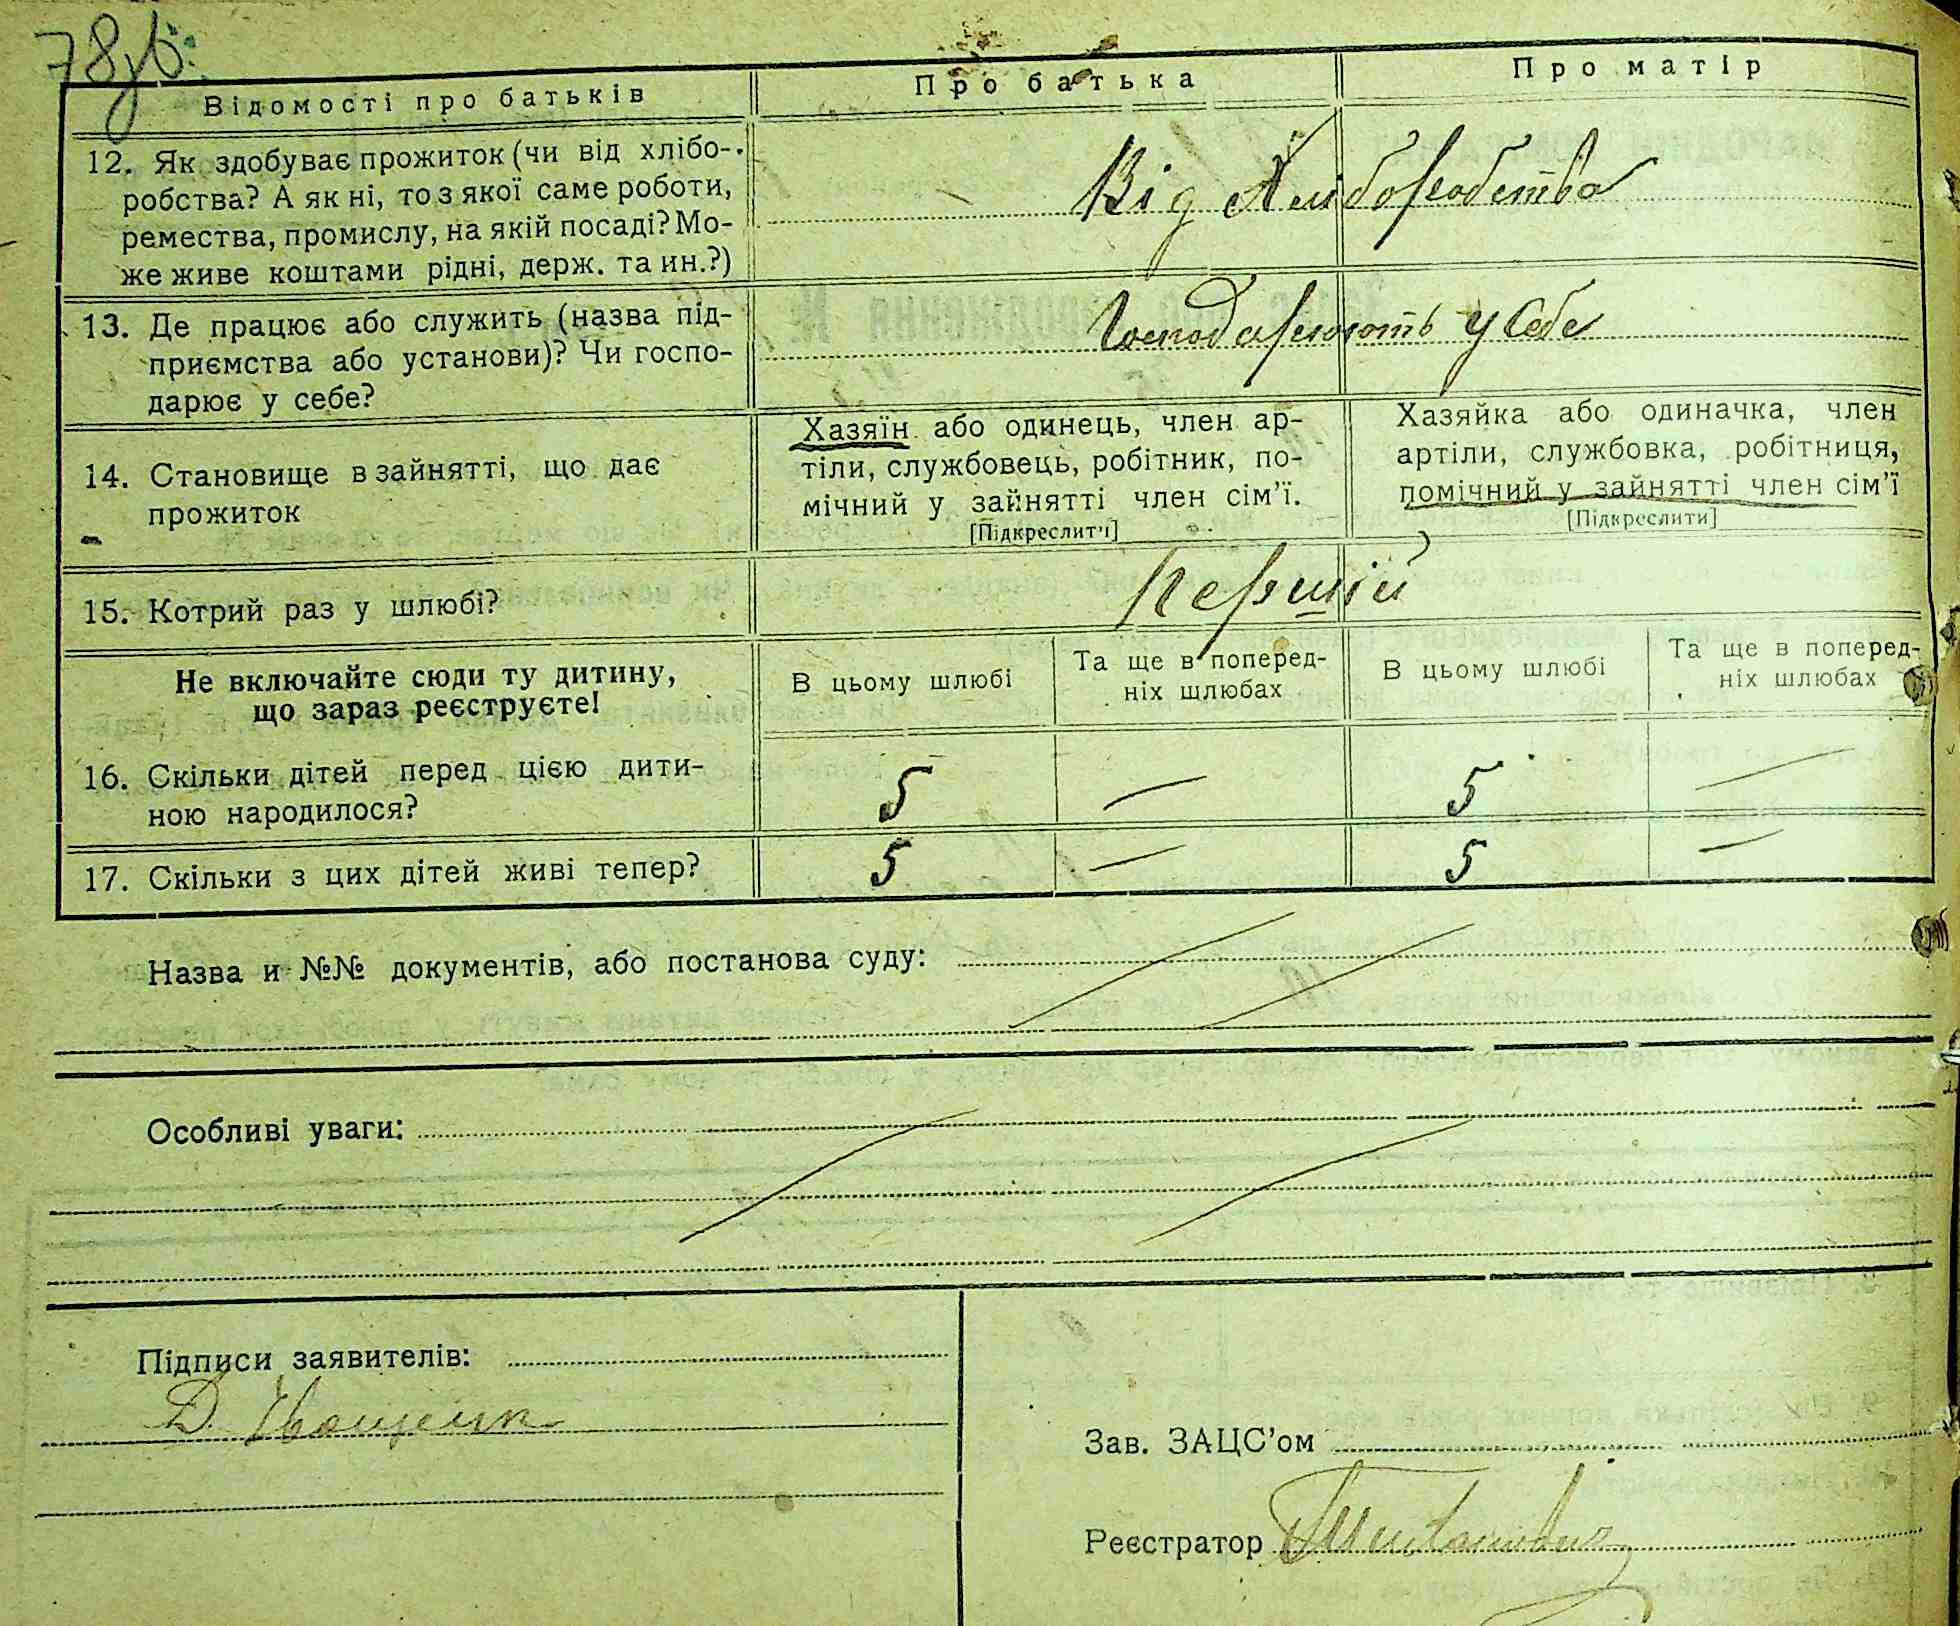 78зв.
Відомості про батьків
Про батька
Про матір
12. Як здобуває прожиток (чи від хлібо-
робства? А як ні, то з якої саме роботи,
ремества, промислу, на якій посаді? Мо-
же живе коштами рідні, держ. та ин.?)
Від Хліборобства
13. Де працює або служить (назва під-
приємства або установи)? Чи госпо-
дарює у себе?
Господарюють у себе
14. Становище в зайнятті, що дає
прожиток
Хазяїн або одинець, член ар-
тіли, службовець, робітник, по-
мічний у зайнятті член сім'ї.
[Підкреслити]
Хазяйка або одиначка, член
артіли, службовка, робітниця,
помічний у зайнятті член сім'ї
[Підкреслити]
15. Котрий раз у шлюбі?
Перший
Не включайте сюди ту дитину,
що зараз реєструєте!
В цьому шлюбі
Та ще в поперед-
ніх шлюбах
В цьому шлюбі
Та ще в поперед-
ніх шлюбах
16. Скільки дітей перед цією дити-
ною народилося?
5 — 5 —
17. Скільки з цих дітей живі тепер?
5 — 5 —
Назва и №№ документів, або постанова суду:
Особливі уваги:
Підписи заявителів:
Д. Іващенко
Зав. ЗАЦС'ом
Реєстратор